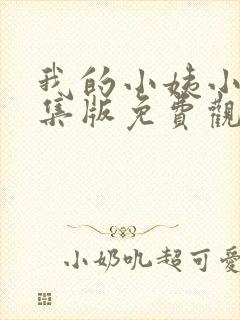 我的小姨小
集版免費觀
小奶吼超可愛